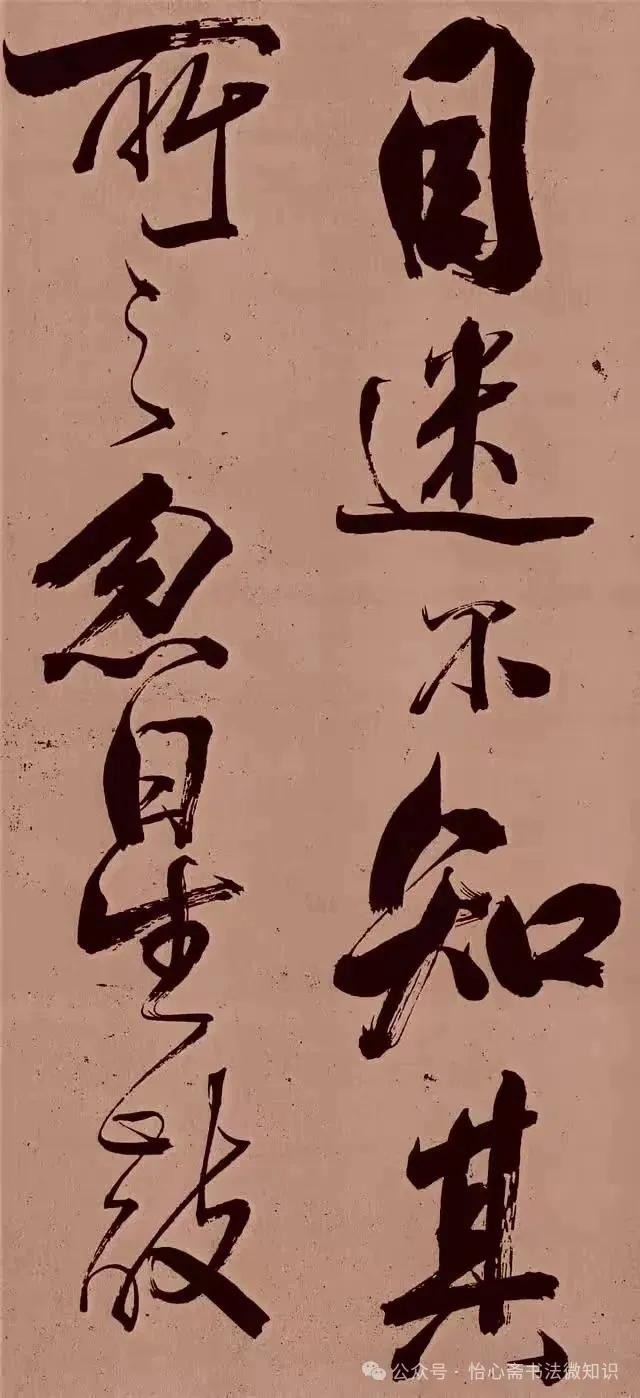 目迷不知其
所之忽星散
公众号·怡心斋书法微知识